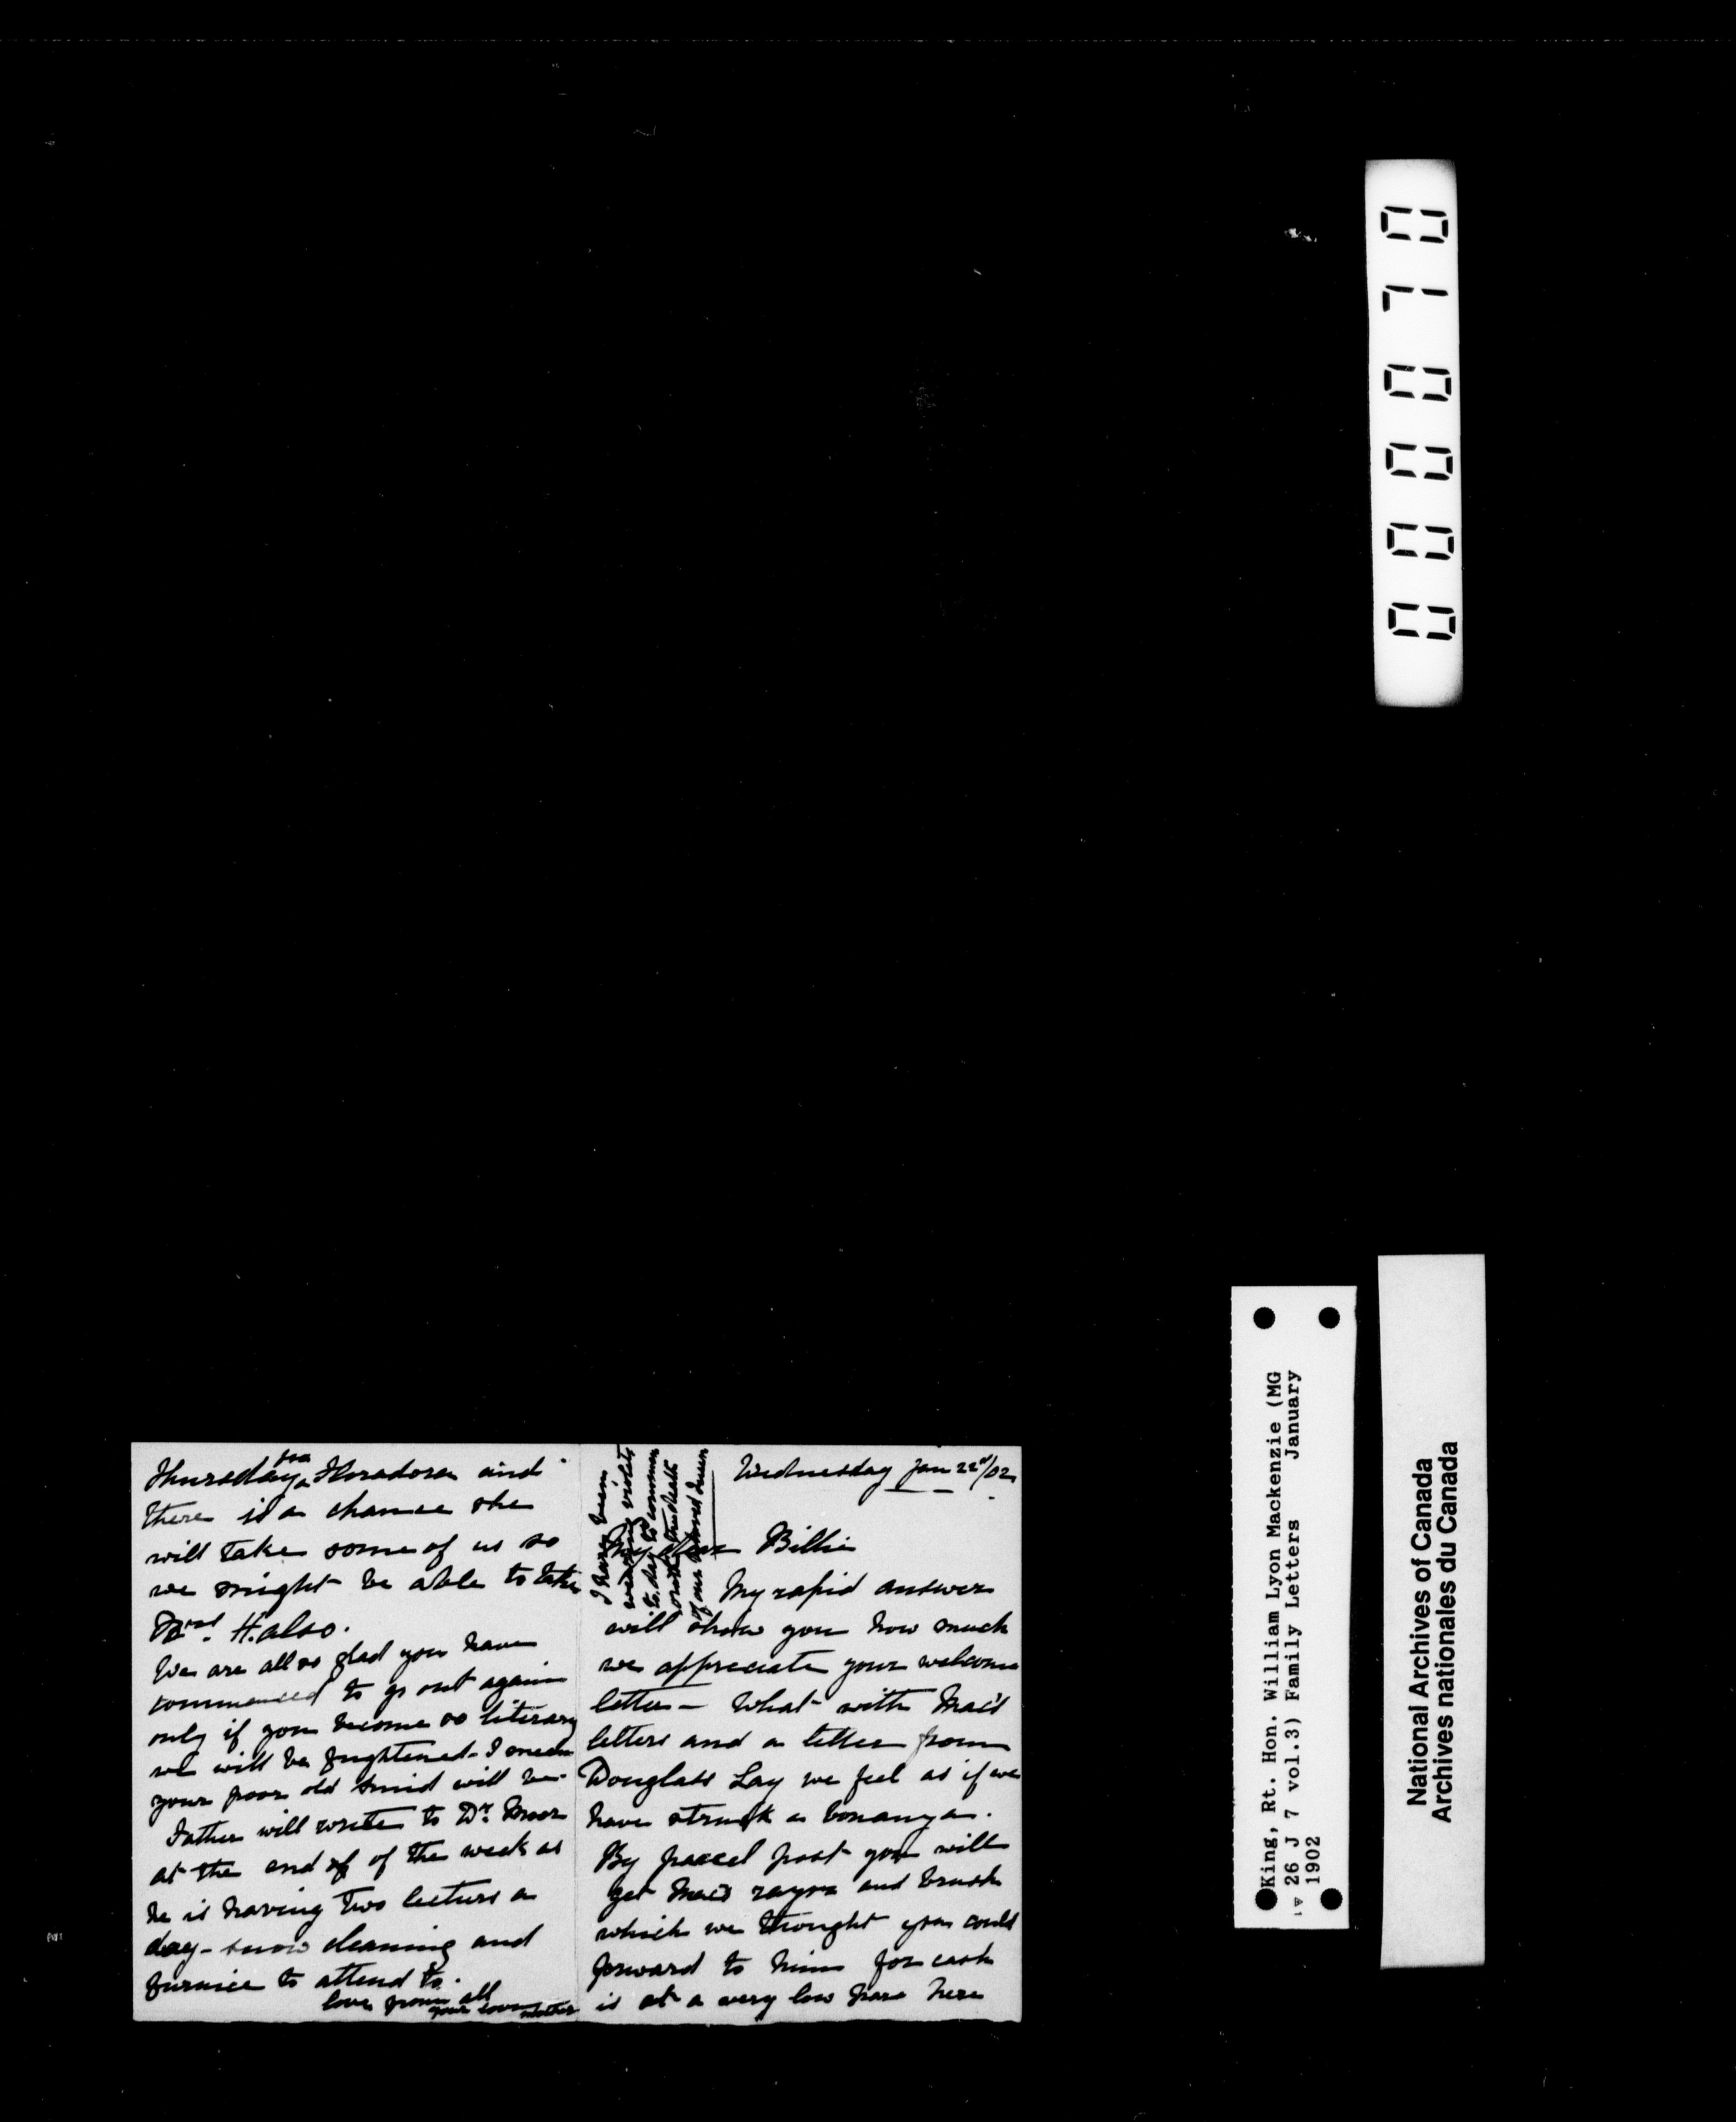 Wednesday Jan 22nd/02
My dear Billie
My rapid answer
will show you how much
we appreciate your welcome
letter – What with Mac's
letters and a letter from
Douglass Lay we feel as if we
have struck a bonanza.
By parcel post you will
get Mac's razor and brush
which we thought you could
forward to him for cash
is at a very low here
I have been
wearing violets
to. day to commem
orate the death
of our beloved Queen
Thursday for Floradora and
there is a chance she
will take some of us so
we might be able to take
Mrs. H. also.
We are all so glad you have
commenced to go out again
only if you become so literary
we will be frightened – I mean
your poor old will be
Father will write to Dr.
at the end of of the week as
he is having two lectures a
day – snow cleaning and
furnice to attend to.
love from all
your loving mother
000070
King, Rt. Hon. William Lyon Mackenzie (MG
26 J 7 vol.3) Family Letters January
1902
National Archives of Canada
Archives nationales du Canada